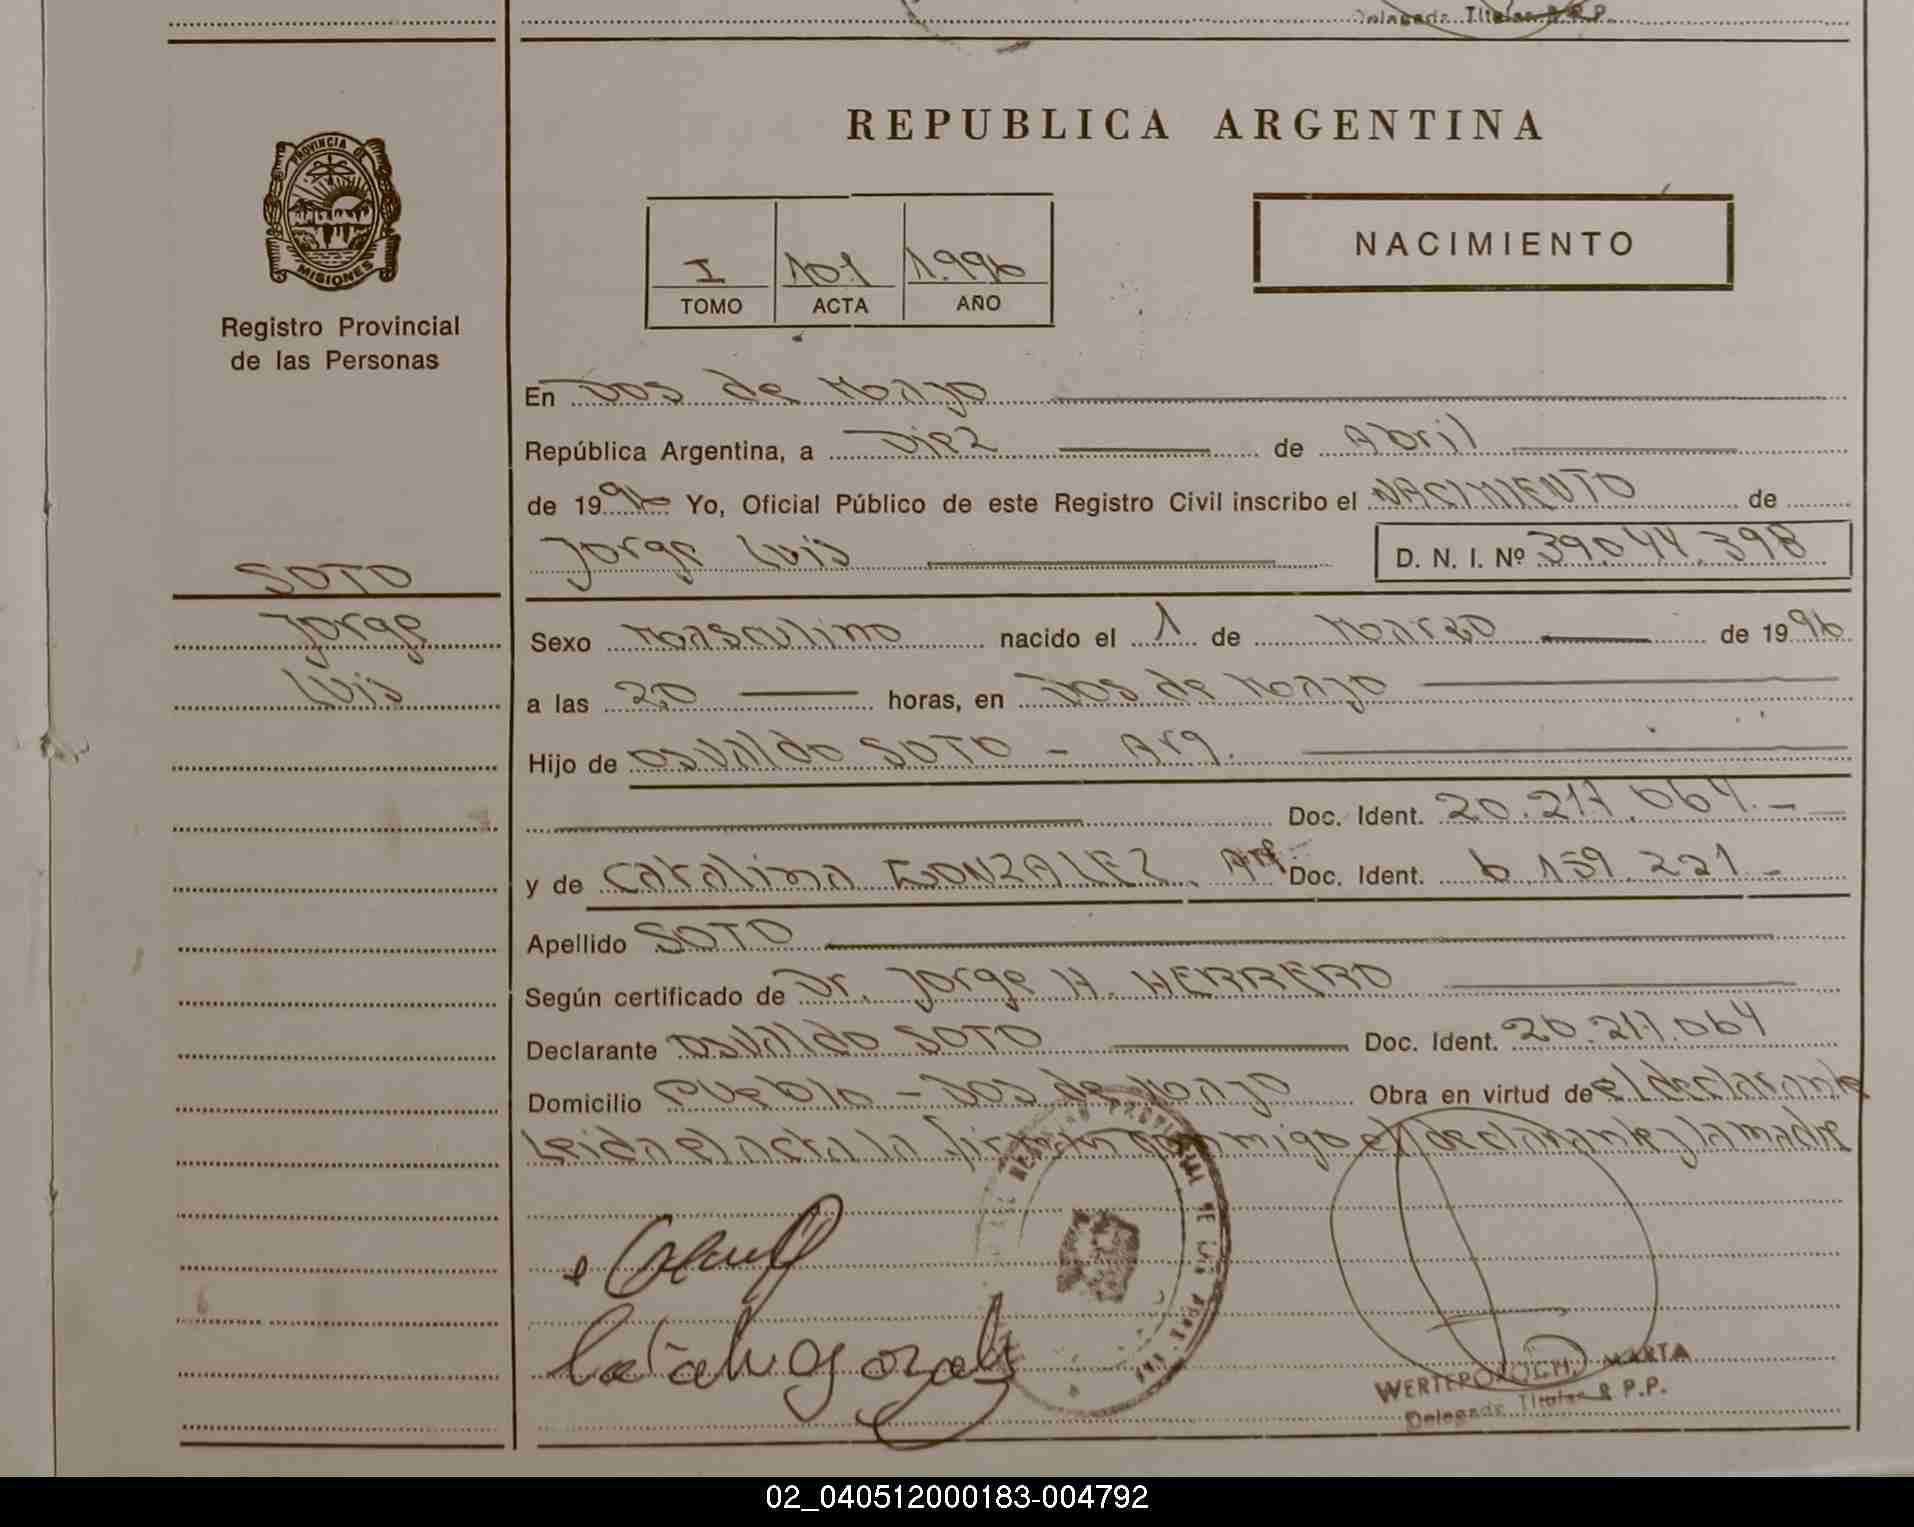 Delegada Titular R.P.P.
REPUBLICA ARGENTINA
PROVINCIA DE
MISIONES
Registro Provincial
de las Personas
I 101 1.996
TOMO ACTA AÑO
NACIMIENTO
En Dos de Mayo
República Argentina, a Diez de Abril
de 1996 Yo, Oficial Público de este Registro Civil inscribo el NACIMIENTO de
Jorge Luis D. N. I. Nº 39.044.398
SOTO
Jorge
Luis
Sexo Masculino nacido el 1 de Marzo de 1996
a las 20 horas, en Dos de Mayo
Hijo de Osvaldo SOTO - Arg.
Doc. Ident. 20.217.064.-
y de Catalina GONZALEZ. Arg. Doc. Ident. 6.159.221-
Apellido SOTO
Según certificado de Dr. Jorge H. HERRERO
Declarante Osvaldo SOTO Doc. Ident. 20.217.064
Domicilio Pueblo - Dos de Mayo Obra en virtud de el declarante
Leida el acta la firman conmigo el declarante y la madre
WERTEPOROCH, MARTA
Delegada Titular R.P.P.
02_040512000183-004792